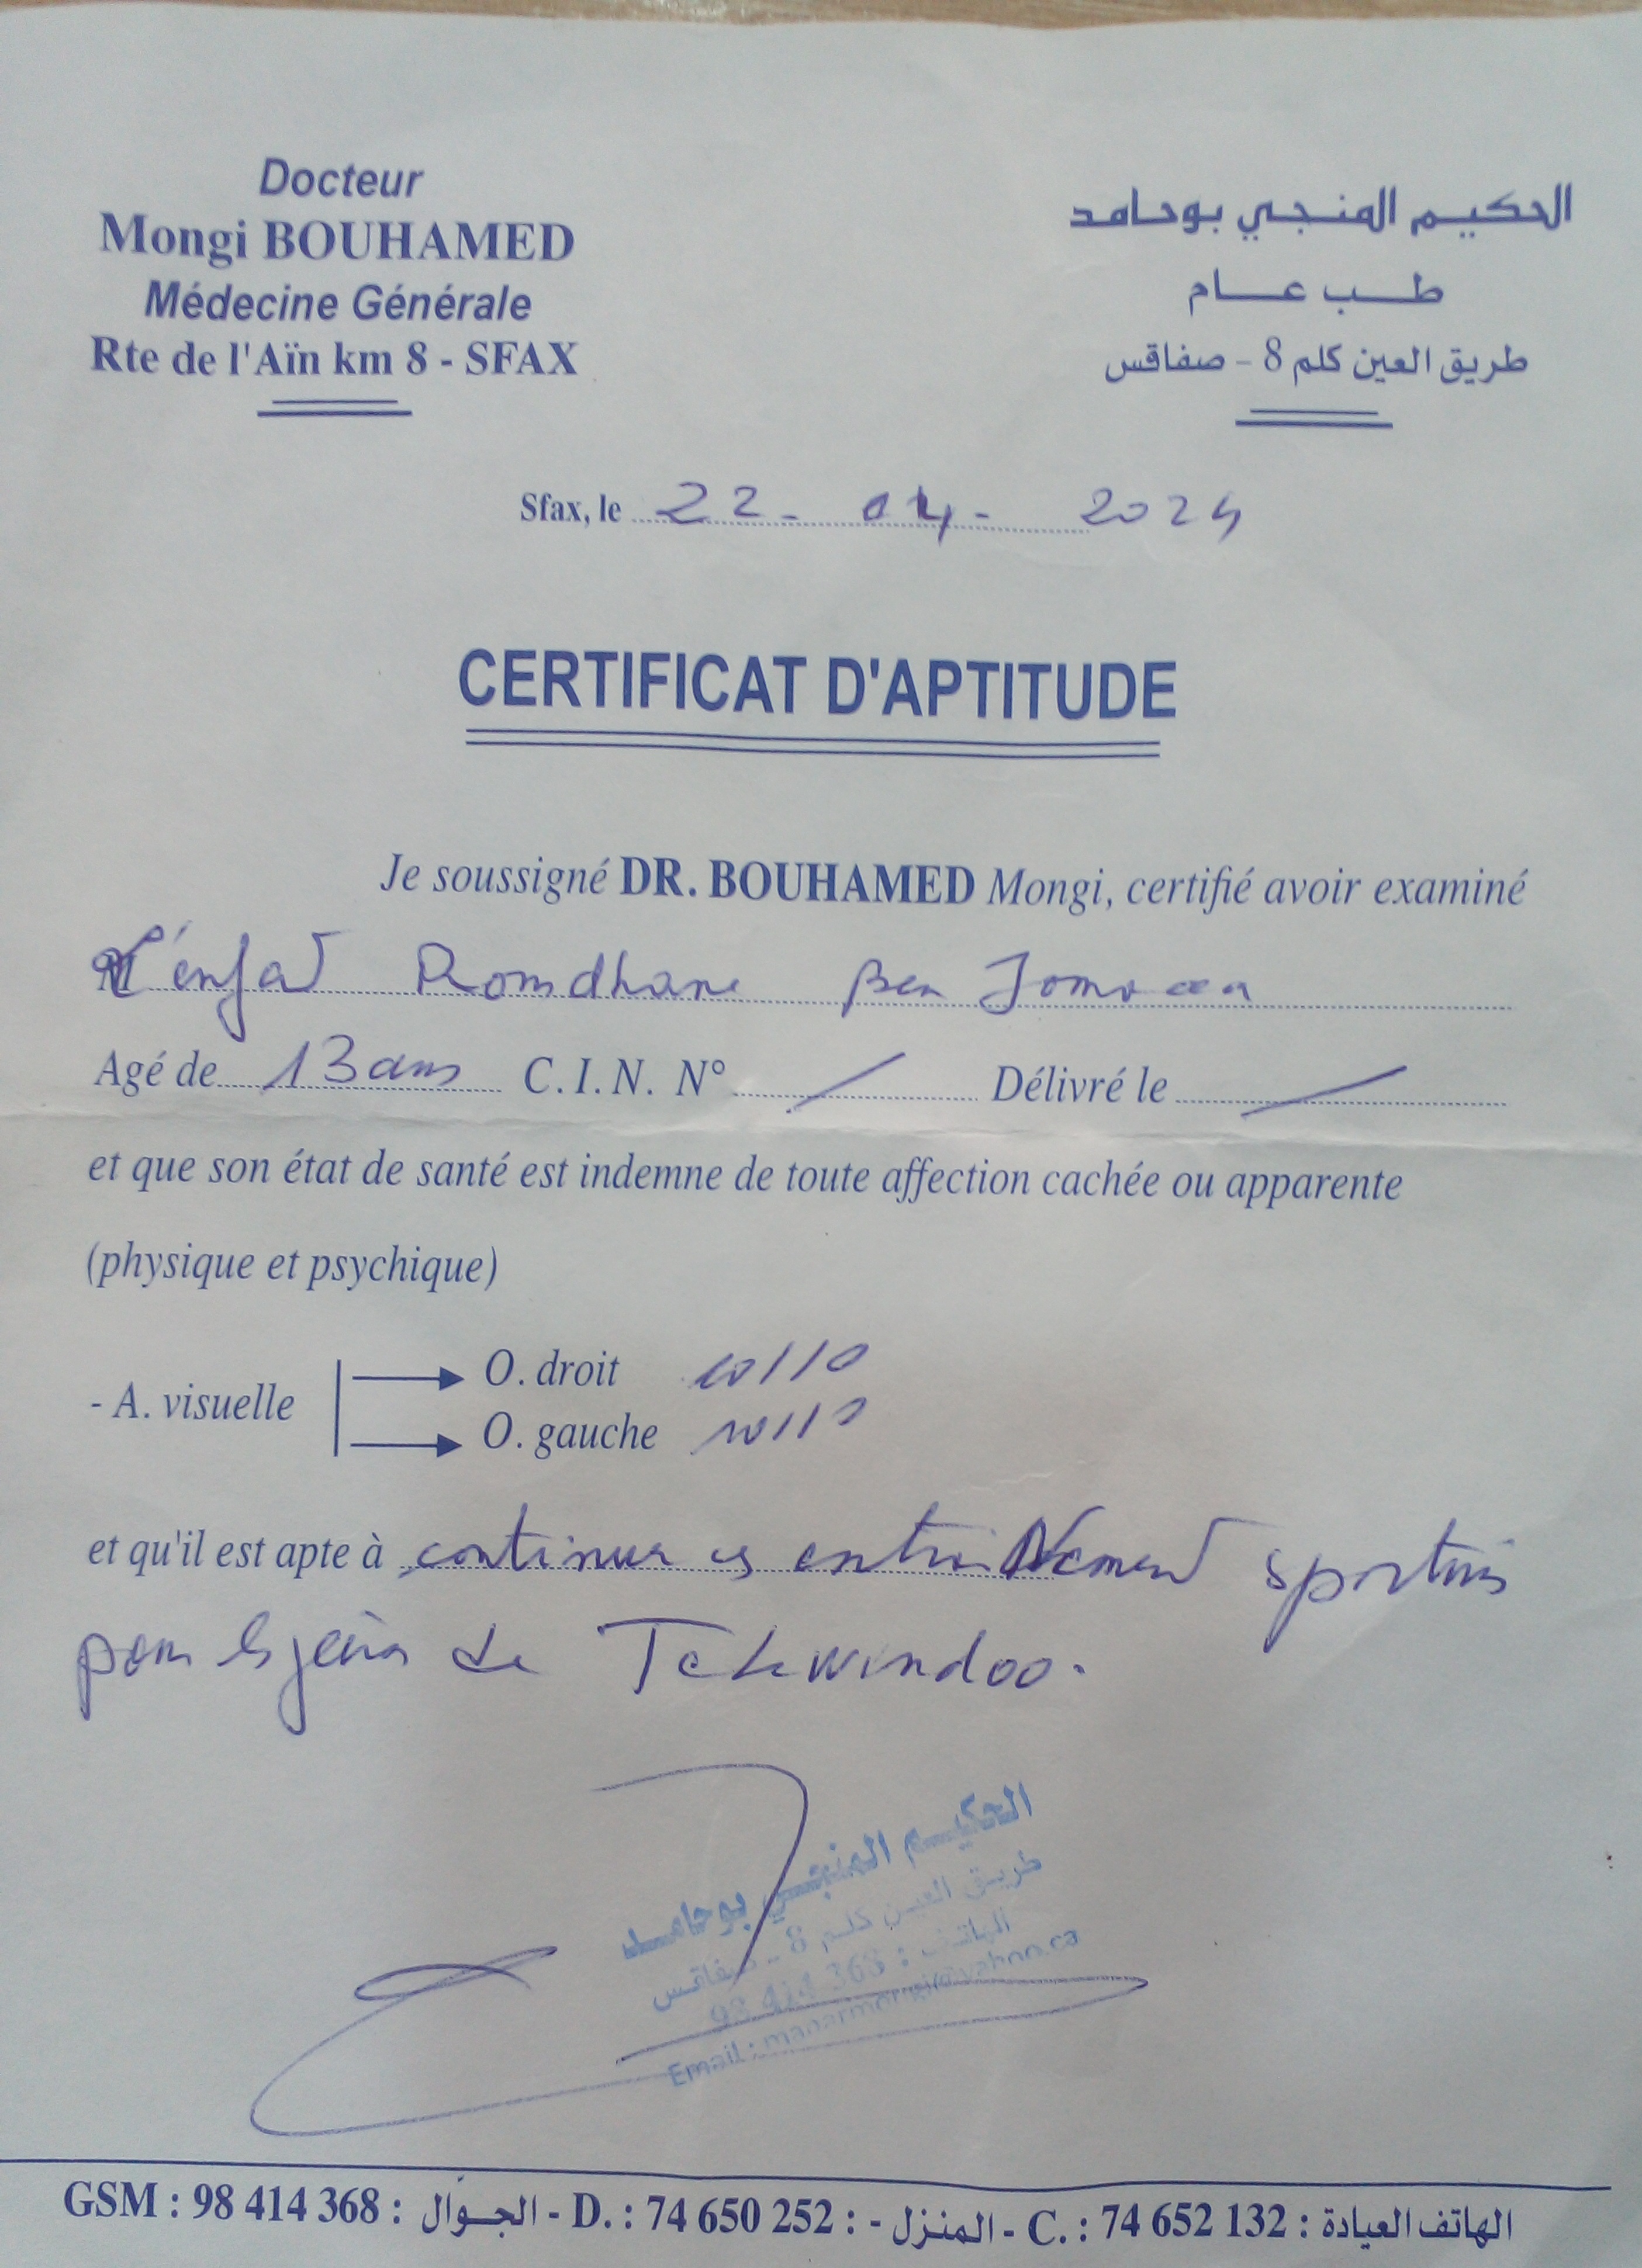 Docteur
Mongi BOUHAMED
Médecine Générale
Rte de l'Aïn km 8 - SFAX
الحكيم المنجي بوحامد
طب عام
طريق العين كلم 8 - صفاقس
Sfax, le 22 - 04 - 2024
CERTIFICAT D'APTITUDE
Je soussigné DR. BOUHAMED Mongi, certifié avoir examiné
L'enfant Romdhane Ben
Agé de 13 ans C.I.N. N° / Délivré le /
et que son état de santé est indemne de toute affection cachée ou apparente
(physique et psychique)
- A. visuelle
O. droit 10/10
O. gauche 10/10
et qu'il est apte à continuer entrainement sportifs
pour de Tekwindoo.
الحكيم المنجي بوحامد
طريق العين كلم 8 - صفاقس
الهاتف : 98 414 368
Email :
GSM : 98 414 368 : الجوال - D. : 74 650 252 : - المنزل - C. : 74 652 132 : الهاتف العيادة